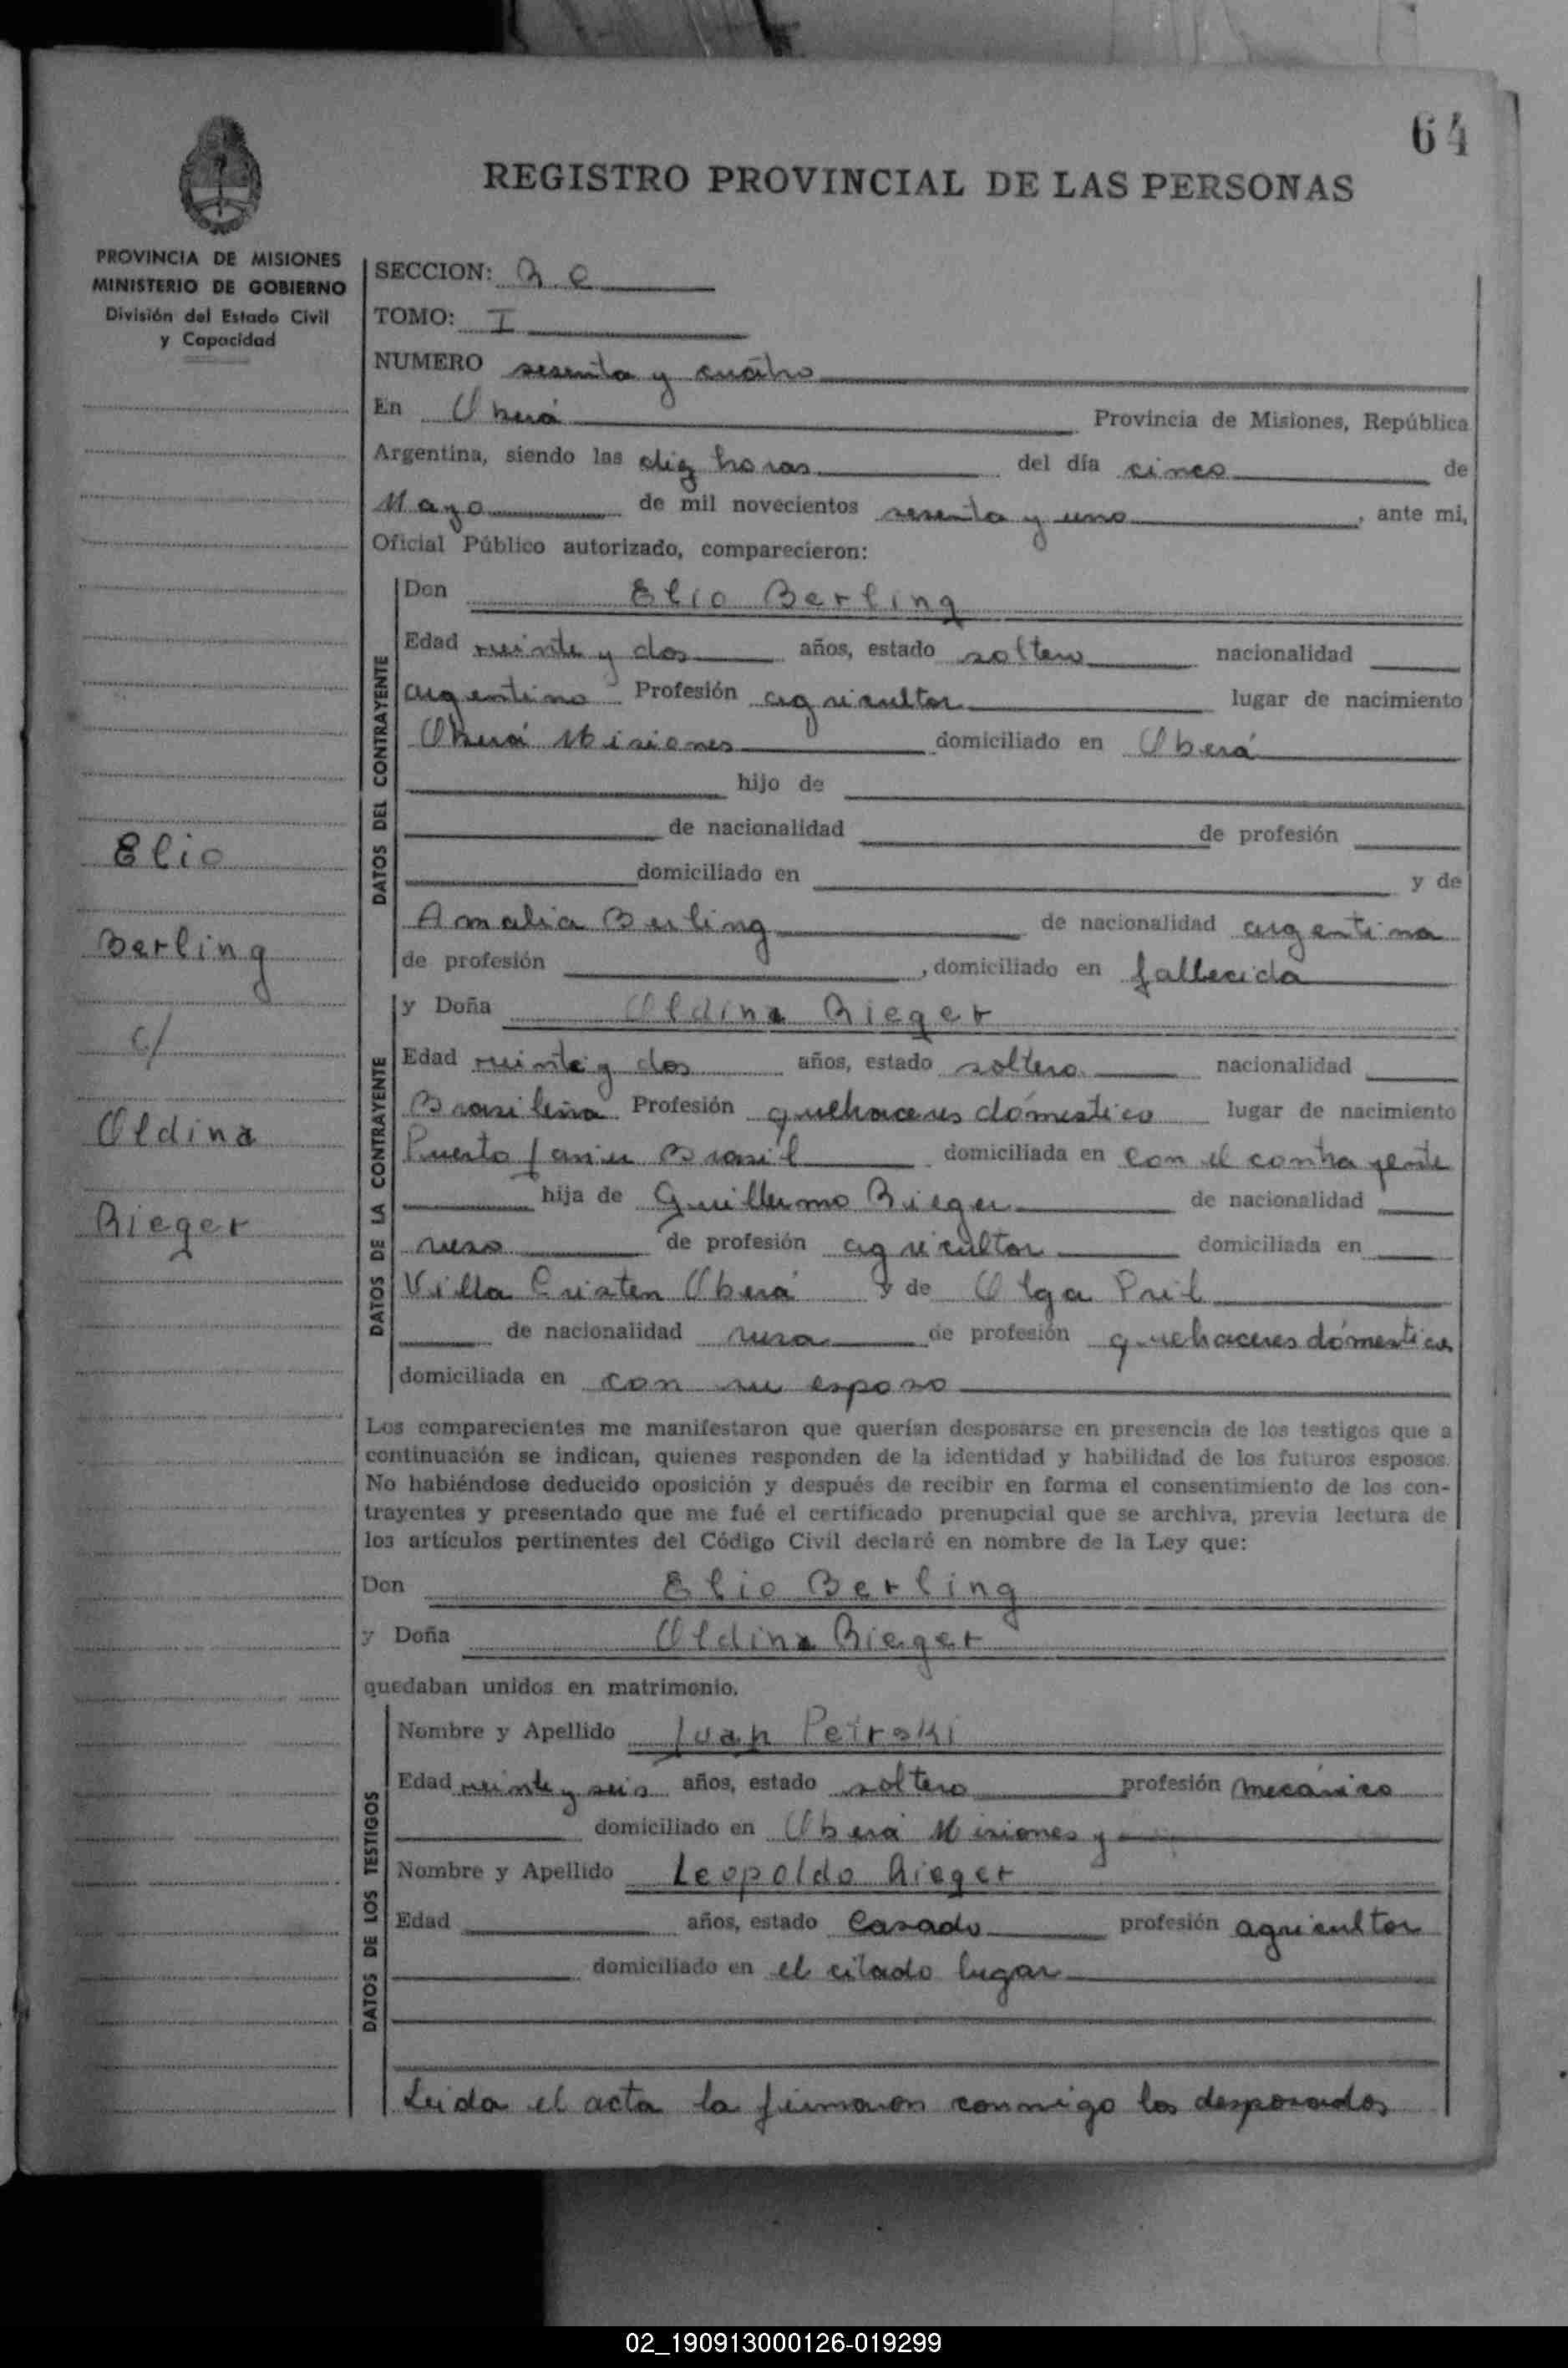 64
REGISTRO PROVINCIAL DE LAS PERSONAS
PROVINCIA DE MISIONES
MINISTERIO DE GOBIERNO
División del Estado Civil
y Capacidad
SECCION: R. C
TOMO: I
NUMERO sesenta y cuatro
En Oberá Provincia de Misiones, República
Argentina, siendo las diez horas del día cinco de
Mayo de mil novecientos sesenta y uno, ante mi,
Oficial Público autorizado, comparecieron:
DATOS DEL CONTRAYENTE
Don Elio Berling
Edad veinte y dos años, estado soltero nacionalidad
argentino Profesión agricultor lugar de nacimiento
Oberá Misiones domiciliado en Oberá
hijo de
de nacionalidad de profesión
domiciliado en y de
Amalia Berling de nacionalidad argentina
de profesión , domiciliado en fallecida
DATOS DE LA CONTRAYENTE
y Doña Oldina Rieger
Edad veinte y dos años, estado soltera nacionalidad
Brasileña Profesión quehaceres domestico lugar de nacimiento
Puerto Brasil domiciliada en con el contrayente
hija de Guillermo Rieger de nacionalidad
ruso de profesión agricultor domiciliada en
Villa Oberá y de Olga
de nacionalidad rusa de profesión quehaceres domestico
domiciliada en con su esposo
Los comparecientes me manifestaron que querían desposarse en presencia de los testigos que a
continuación se indican, quienes responden de la identidad y habilidad de los futuros esposos.
No habiéndose deducido oposición y después de recibir en forma el consentimiento de los con-
trayentes y presentado que me fué el certificado prenupcial que se archiva, previa lectura de
los artículos pertinentes del Código Civil declaré en nombre de la Ley que:
Don Elio Berling
y Doña Oldina Rieger
quedaban unidos en matrimonio.
DATOS DE LOS TESTIGOS
Nombre y Apellido Juan Petroski
Edad veinte y seis años, estado soltero profesión mecánico
domiciliado en Oberá Misiones y
Nombre y Apellido Leopoldo Rieger
Edad años, estado Casado profesión agricultor
domiciliado en el citado lugar
Leida el acta la firmaron conmigo los desposados
Elio
Berling
c/
Oldina
Rieger
02_190913000126-019299